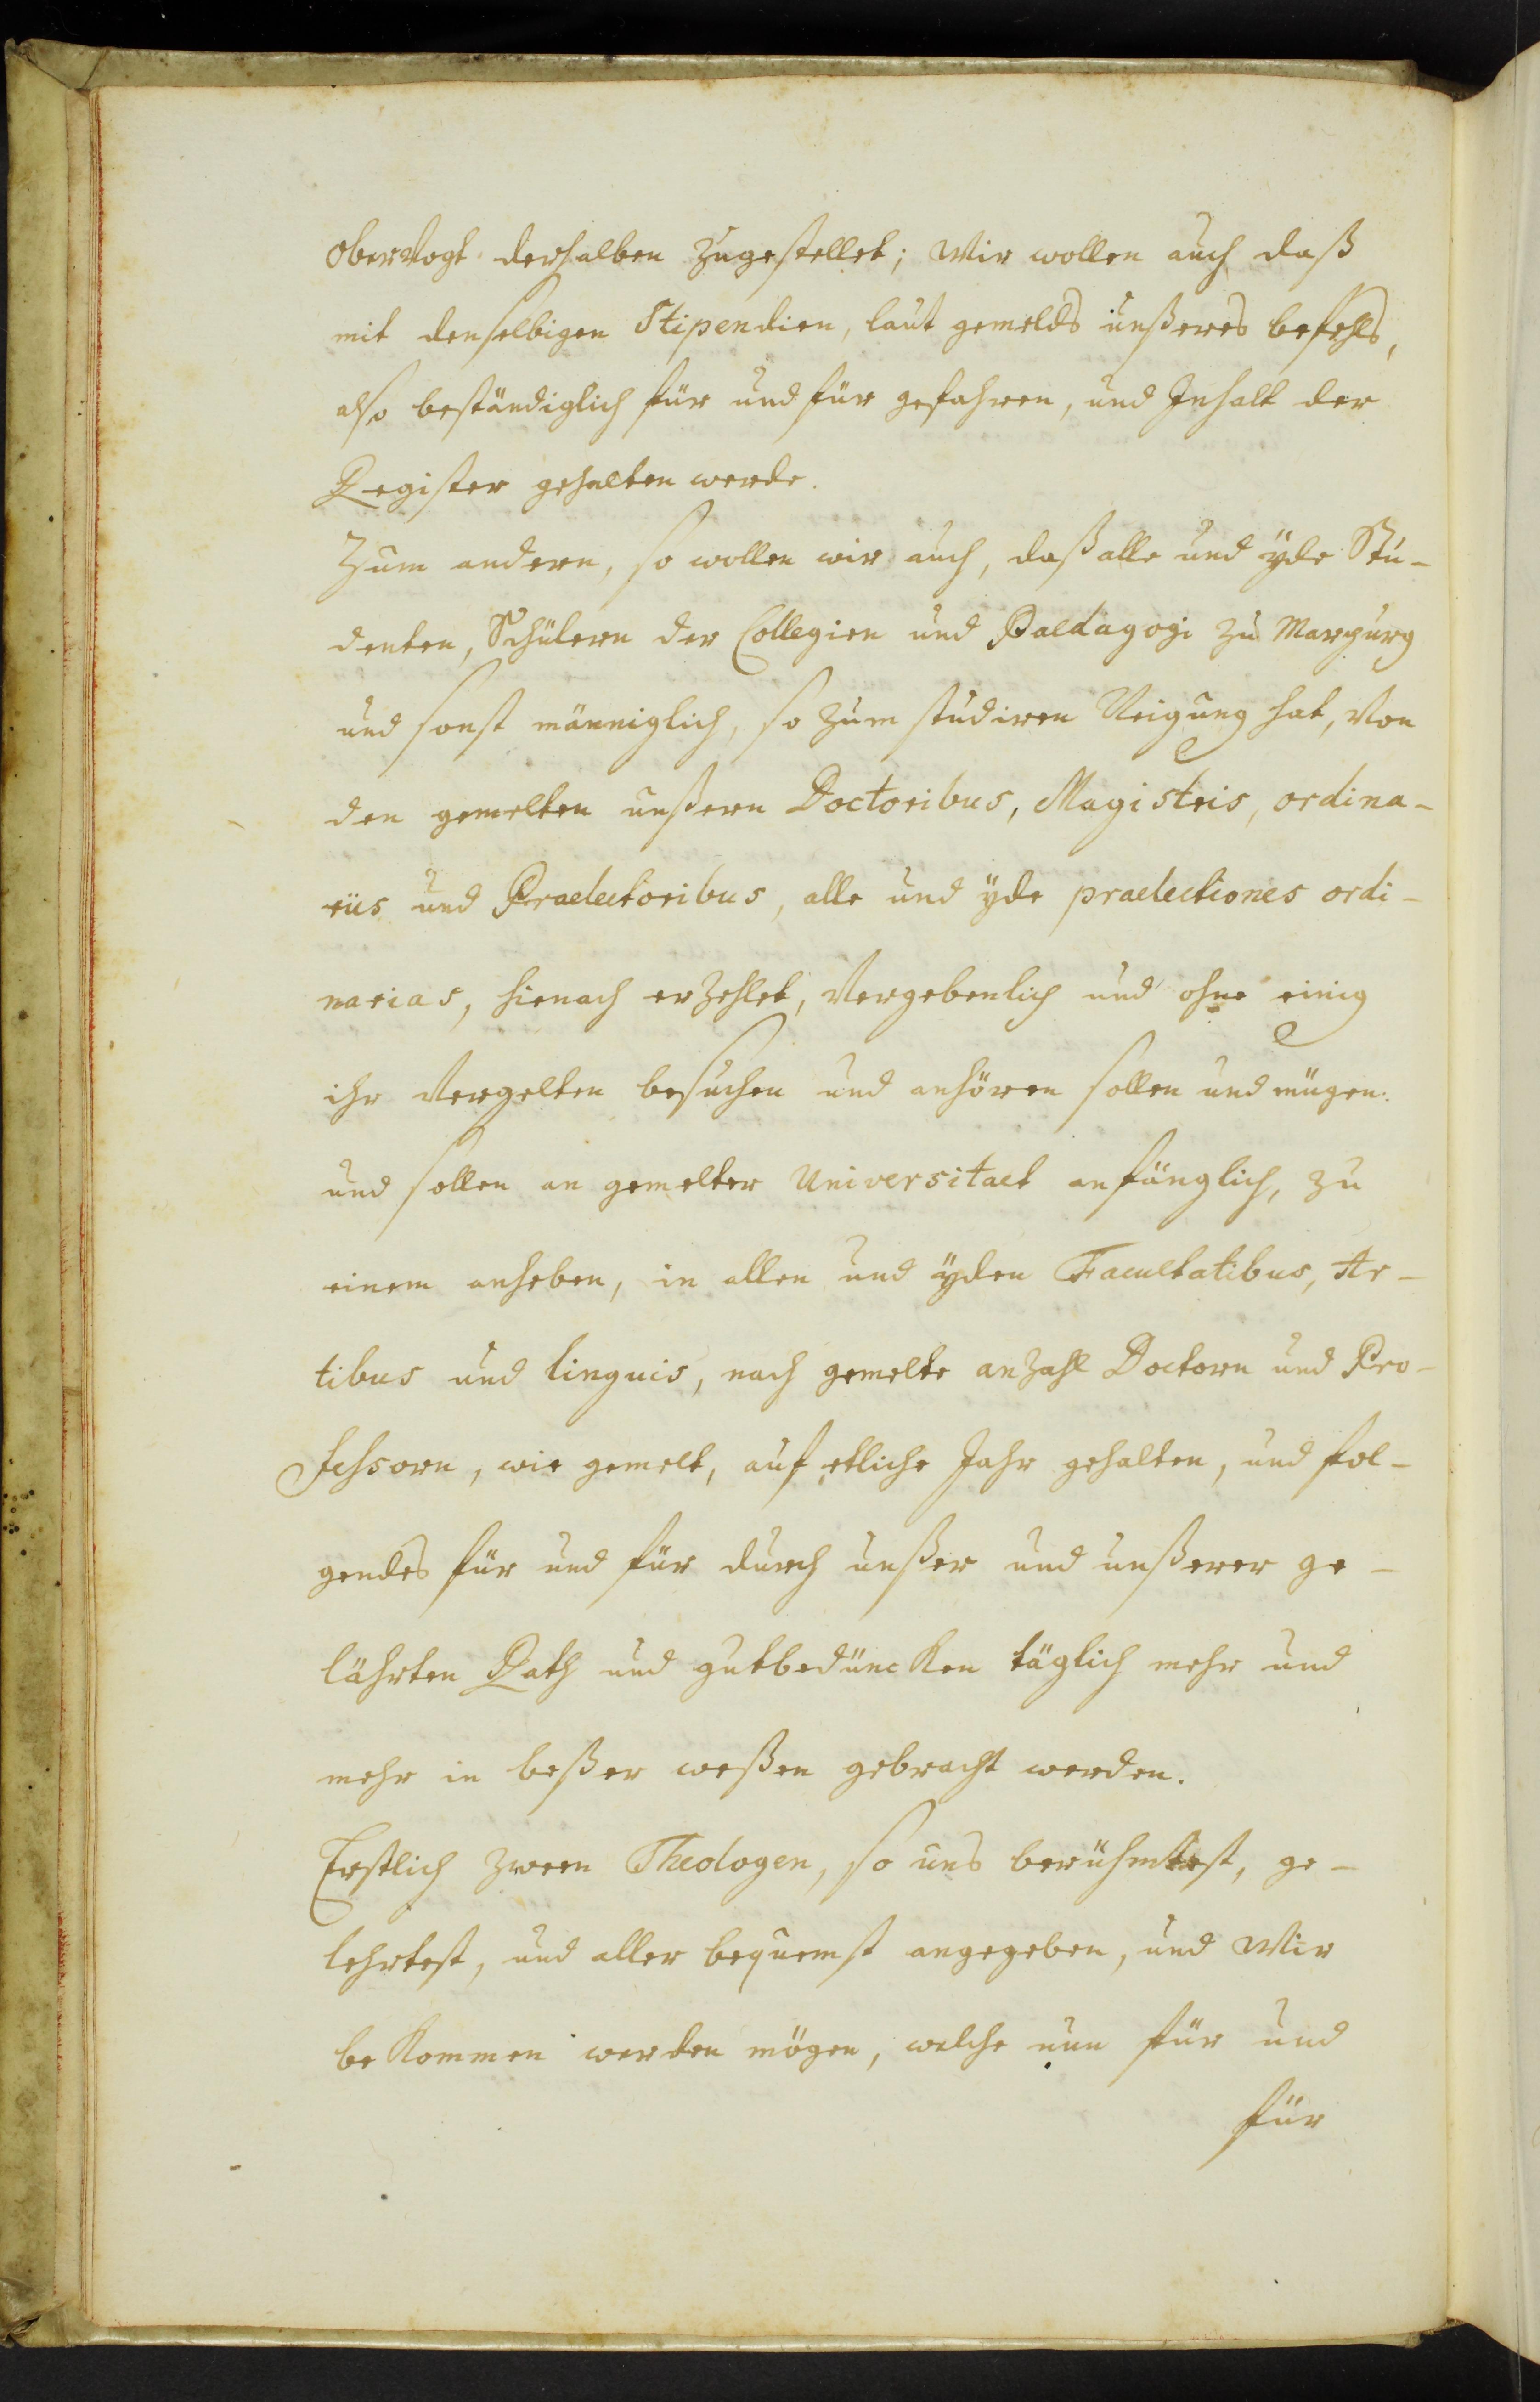 oberVogt derhalben zugestellet; Wir wollen auch daß
mit denselbigen Stipendien, laut gemelds unßeres befehls,
also beständiglich für und für gefahren, und Inhalt der
Register gehalten werde.
Zum andern, so wollen wir auch, daß alle und yede Stu-
denten, Schülern der Collegien und Paedagogi zu Marpurg
und sonst männiglich, so zum studiren Neigung hat, Von
den gemelten unßern Doctoribus, Magistris, ordina-
riis und Praelectoribus, alle und yde praelectiones ordi-
narias, hienach erzehlet, Vergebenlich und ohne einig
ihr Vergelten besuchen und anhören sollen und mügen.
und sollen an gemelter Universitaet anfänglich, zu
einem anheben, in allen und yden Facultatibus, Ar-
tibus und linguis, nach gemelte anzahl Doctorn und Pro-
fessorn, wie gemelt, auf etliche Jahr gehalten, und fol-
gendes für und für durch unßer und unßerer ge-
lährten Rath und gutbedüncken täglich mehr und
mehr in beßer weßen gebracht werden.
Erstlich zween Theologen, so uns berühmtest, ge-
lehrtest, und aller bequemst angegeben, und Wir
bekommen werden mögen, welche nun für und
für